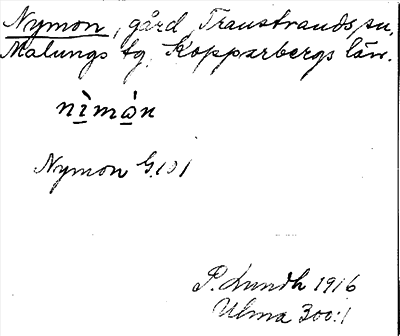 Nymon, gård, Transtrands sn,
Malungs tg, Kopparbergs län.
nìmån
Nymon G.101
P. Lundh 1916
Ulma 300:1